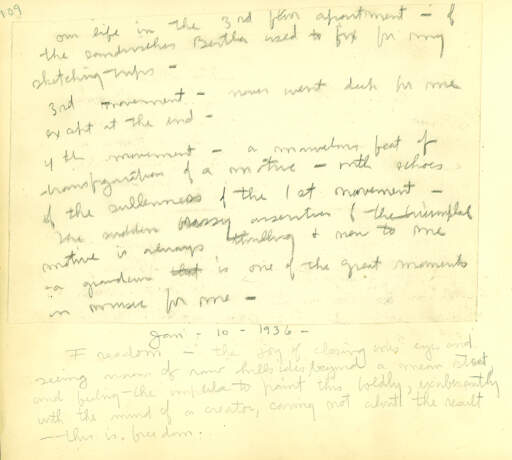 109
our life in the 3rd floor apartment – of
the sandwiches Bertha used to fix for my
sketching-trips –
3rd movement – never went deep for me
except at the end –
4th movement – a marvelous feat of
transfiguration of a motive – with echoes
of the sullenness of the 1st movement –
The sudden brassy assertion of the triumphal
motive is always thrilling & new to me
– a grandeur that is one of the great moments
in music for me –
Jan – 10 – 1936 –
Freedom – the joy of closing one's eyes and
seeing of raw hillsides beyond a mean street
and feeling the impulse to paint this boldly, exuberantly
with the mind of a creator, caring not about the result
— this is freedom.